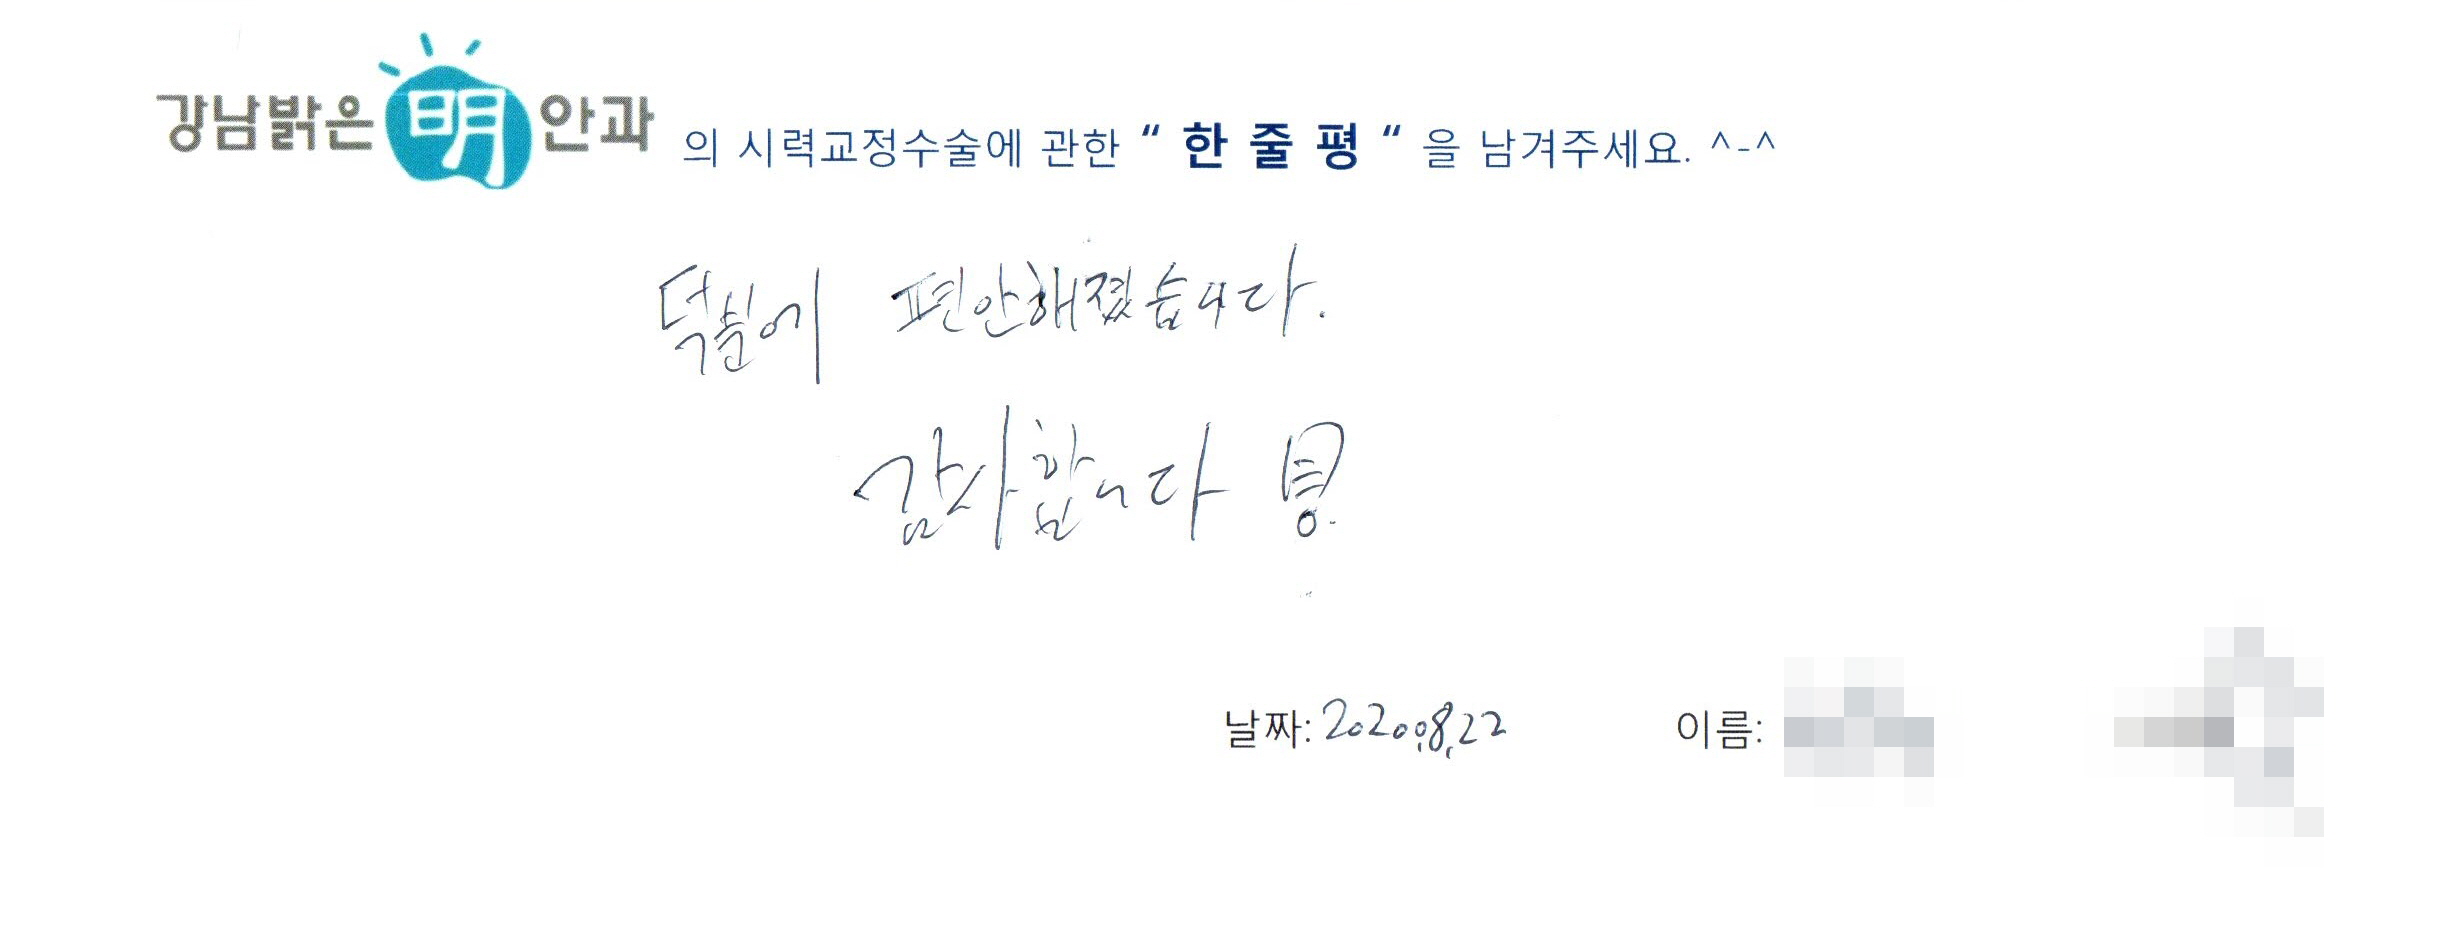 강남밝은明안과 의 시력교정수술에 관한 “ 한 줄 평 “ 을 남겨주세요. ^-^
덕분에 편안해졌습니다.
감사합니다
날짜: 2020.8.22 이름: